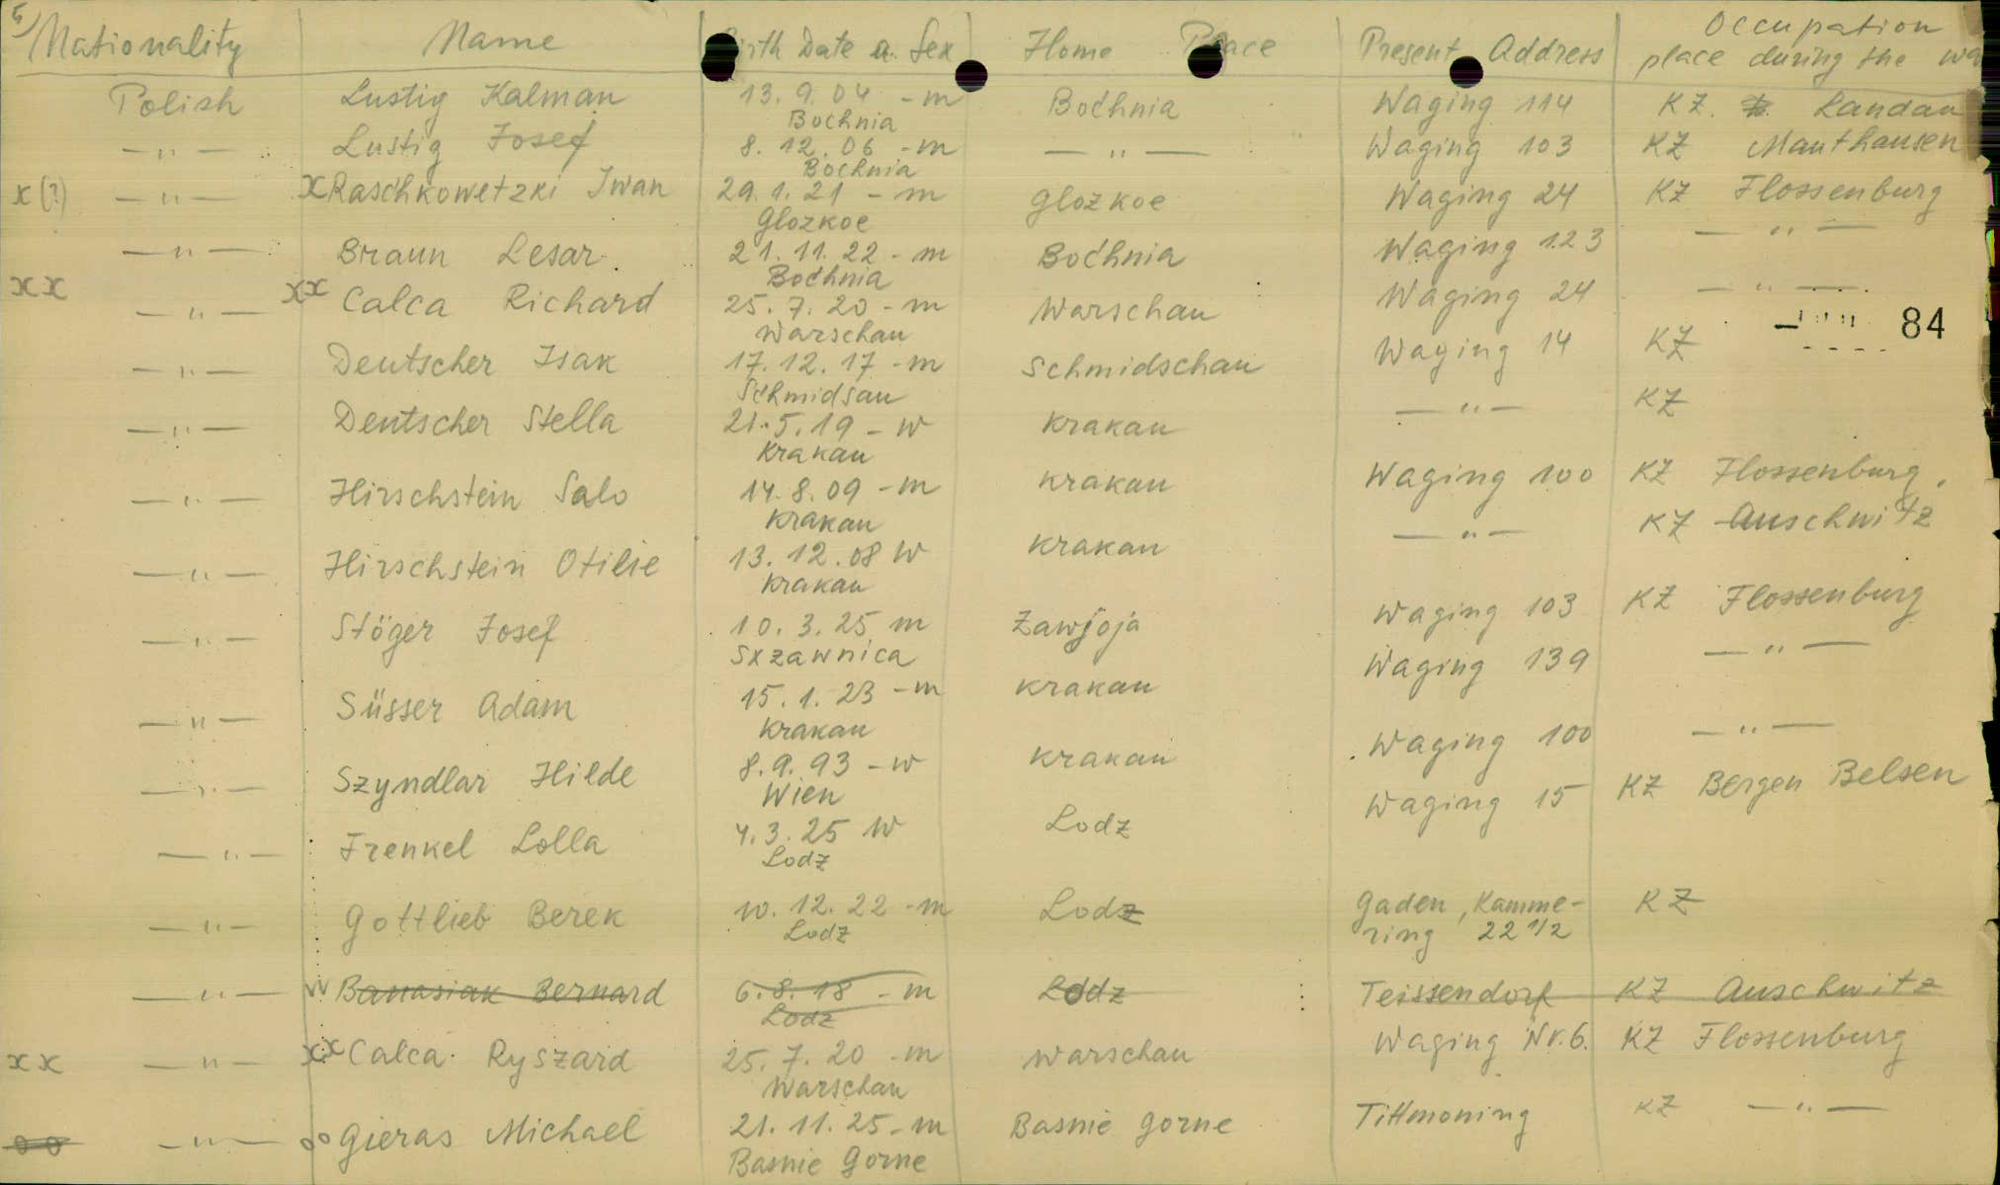 5) Nationality Name Birth Date u. Sex Home Place Present Address Occupation place during the wa
Polish Lustig Kalman 13.9.04 - m Bochnia Bochnia Waging 114 KZ. Landau
— " — Lustig Josef 8.12.06 - m Bochnia — " — Waging 103 KZ Mauthausen
x(?) — " — x Raschkowetzki Iwan 29.1.21 - m Glozkoe Glozkoe Waging 24 KZ Flossenburg
— " — Braun Lesar 21.11.22 - m Bochnia Bochnia Waging 123 — " —
xx — " — xx Calca Richard 25.7.20 - m Warschau Warschau Waging 24 — " —
— " — Deutscher Isak 17.12.17 - m Schmidsau Schmidschau Waging 14 KZ — " — 84
— " — Deutscher Stella 21.5.19 - w Krakau Krakau — " — KZ
— " — Hirschstein Salo 14.8.09 - m Krakau Krakau Waging 100 KZ Flossenburg
— " — Hirschstein Otilie 13.12.08 W Krakau Krakau — " — KZ Auschwitz
— " — Stöger Josef 10.3.25 m Sxzawnica Zawjoja Waging 103 KZ Flossenburg
— " — Süsser Adam 15.1.23 - m Krakau Krakau Waging 139 — " —
— " — Szyndlar Hilde 8.9.93 - w Wien Krakau Waging 100 — " —
— " — Frenkel Lolla 4.3.25 W Lodz Lodz Waging 15 KZ Bergen Belsen
— " — Gottlieb Berek 10.12.22 - m Lodz Lodz Gaden, Kammering 22 1/2 KZ
— " — Banasiak Bernard 6.8.18 - m Lodz Lodz Teissendorf KZ Auschwitz
xx — " — xx Calca Ryszard 25.7.20 - m Warschau Warschau Waging Nr.6. KZ Flossenburg
oo — " — oo Gieras Michael 21.11.25 - m Basnie Gorne Basnie Gorne Tittmoning KZ — " —